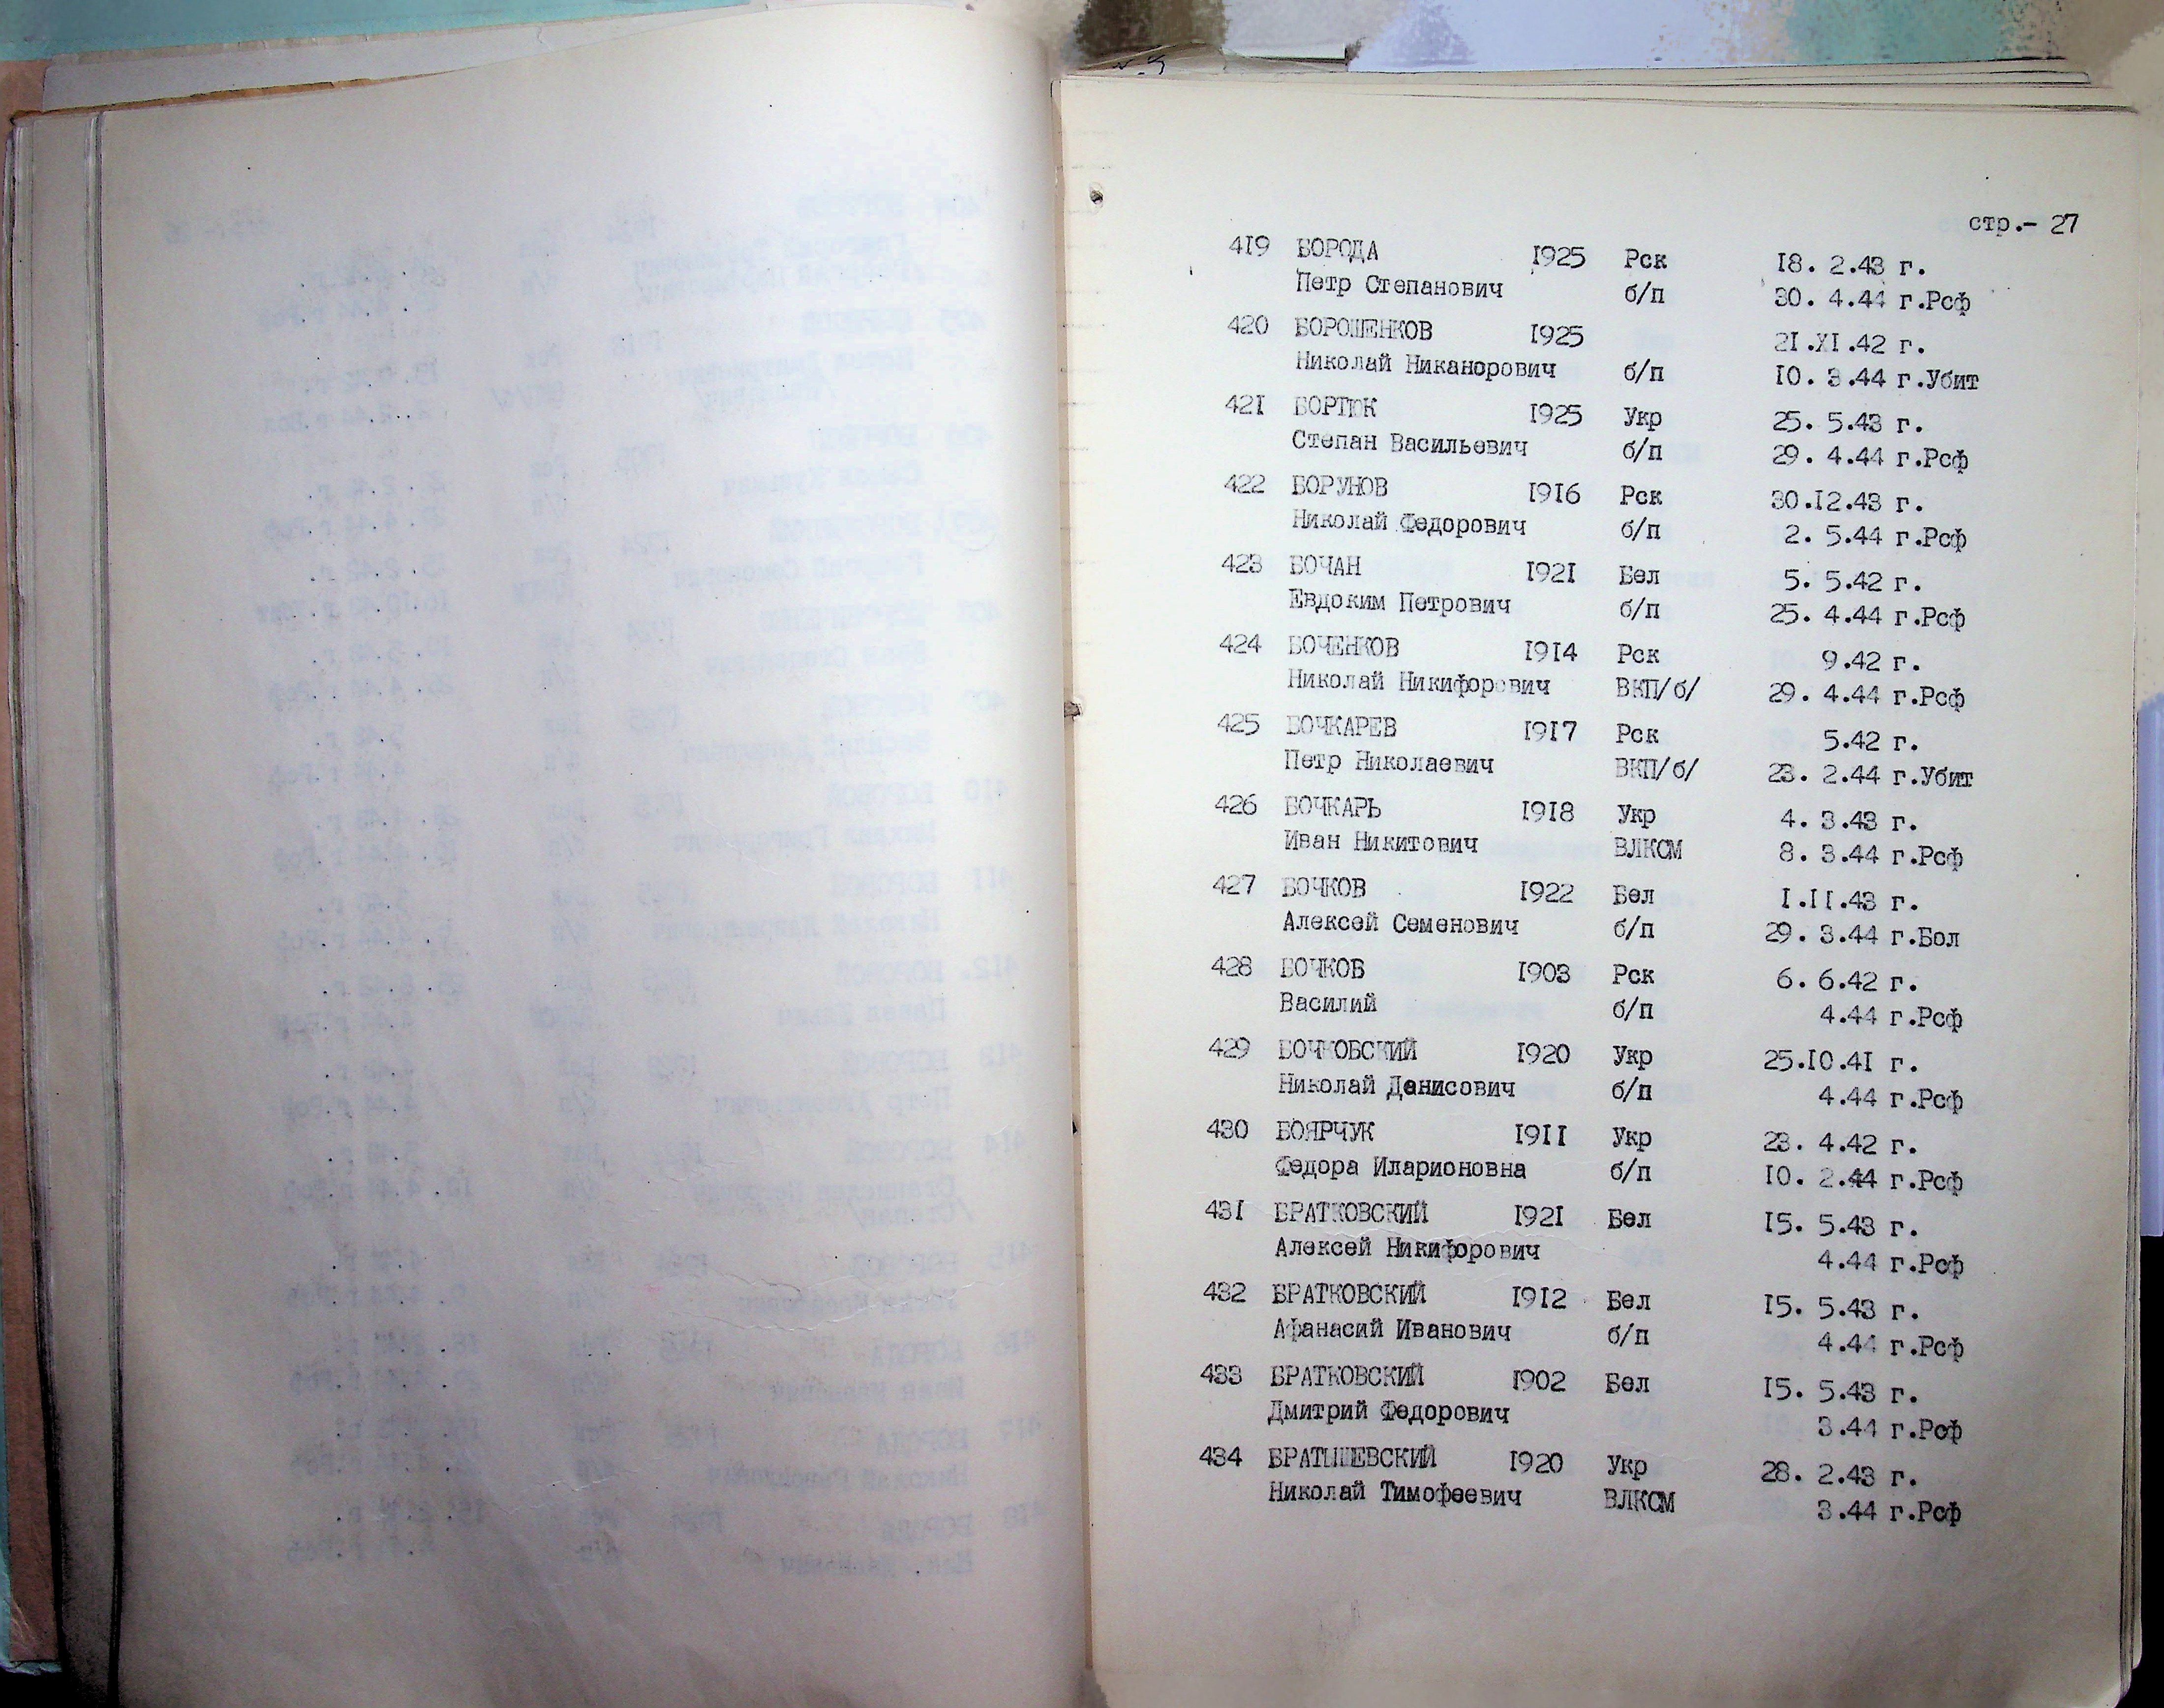 стр.- 27
419 БОРОДА 1925 Рск 18. 2.43 г.
Петр Степанович б/п 30. 4.44 г.Рсф
420 БОРОШЕНКОВ 1925 21.XI.42 г.
Николай Никанорович б/п 10. 3.44 г.Убит
421 БОРТЮК 1925 Укр 25. 5.43 г.
Степан Васильевич б/п 29. 4.44 г.Рсф
422 БОРУНОВ 1916 Рск 30.12.43 г.
Николай Федорович б/п 2. 5.44 г.Рсф
423 БОЧАН 1921 Бел 5. 5.42 г.
Евдоким Петрович б/п 25. 4.44 г.Рсф
424 БОЧЕНКОВ 1914 Рск 9.42 г.
Николай Никифорович ВКП/б/ 29. 4.44 г.Рсф
425 БОЧКАРЕВ 1917 Рск 5.42 г.
Петр Николаевич ВКП/б/ 23. 2.44 г.Убит
426 БОЧКАРЬ 1918 Укр 4. 3.43 г.
Иван Никитович ВЛКСМ 8. 3.44 г.Рсф
427 БОЧКОВ 1922 Бел 1.11.43 г.
Алексей Семенович б/п 29. 3.44 г.Бол
428 БОЧКОВ 1903 Рск 6. 6.42 г.
Василий б/п 4.44 г.Рсф
429 БОЧКОВСКИЙ 1920 Укр 25.10.41 г.
Николай Денисович б/п 4.44 г.Рсф
430 БОЯРЧУК 1911 Укр 23. 4.42 г.
Федора Иларионовна б/п 10. 2.44 г.Рсф
431 БРАТКОВСКИЙ 1921 Бел 15. 5.43 г.
Алексей Никифорович 4.44 г.Рсф
432 БРАТКОВСКИЙ 1912 Бел 15. 5.43 г.
Афанасий Иванович б/п 4.44 г.Рсф
433 БРАТКОВСКИЙ 1902 Бел 15. 5.43 г.
Дмитрий Федорович 3.44 г.Рсф
434 БРАТЫШЕВСКИЙ 1920 Укр 28. 2.43 г.
Николай Тимофеевич ВЛКСМ 3.44 г.Рсф